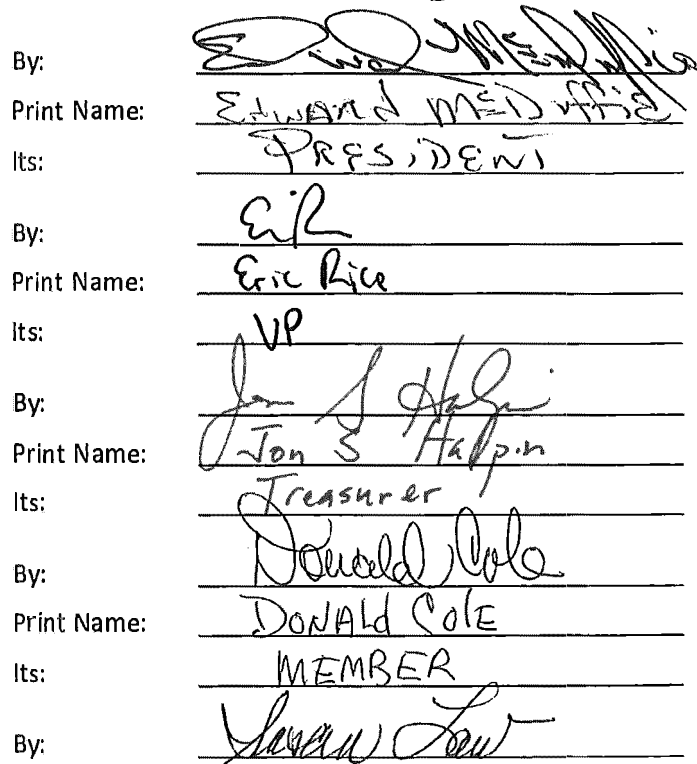 By: Edward McDuffie
Print Name: Edward McDuffie
Its: PRESIDENT
By:
Print Name: Eric Rice
Its: VP
By: Jon S Halpin
Print Name: Jon S Halpin
Its: Treasurer
By: Donald Cole
Print Name: DONALD COLE
Its: MEMBER
By: